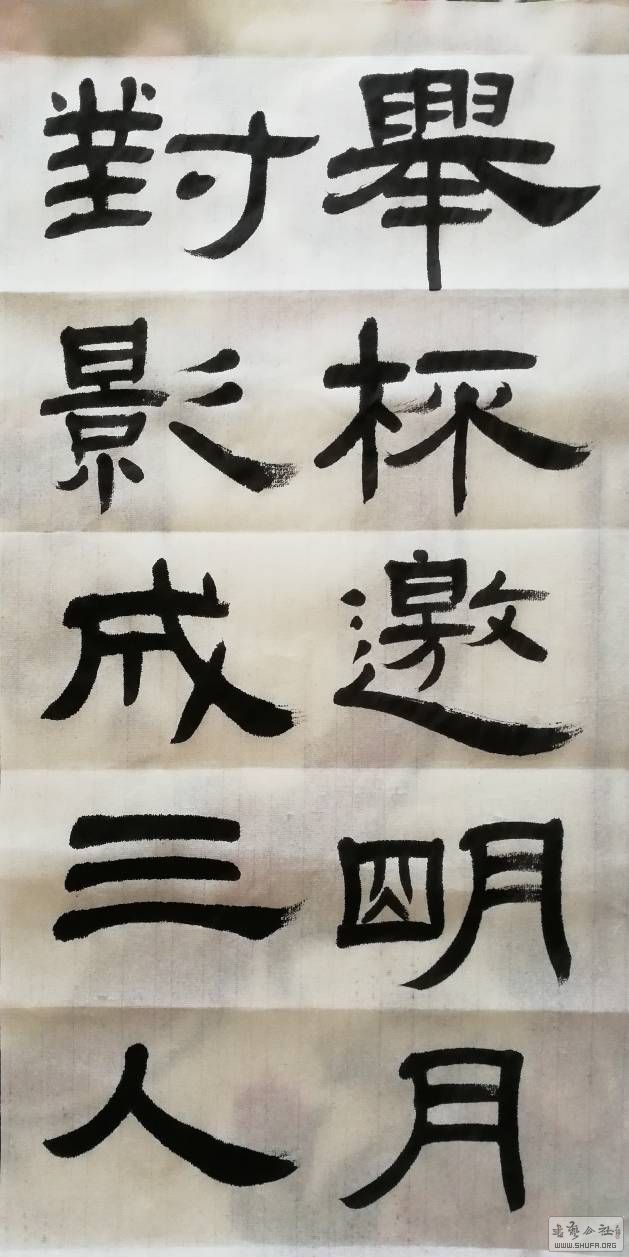 舉杯邀朙月
對影成三人
書藝公社
WWW.SHUFA.ORG